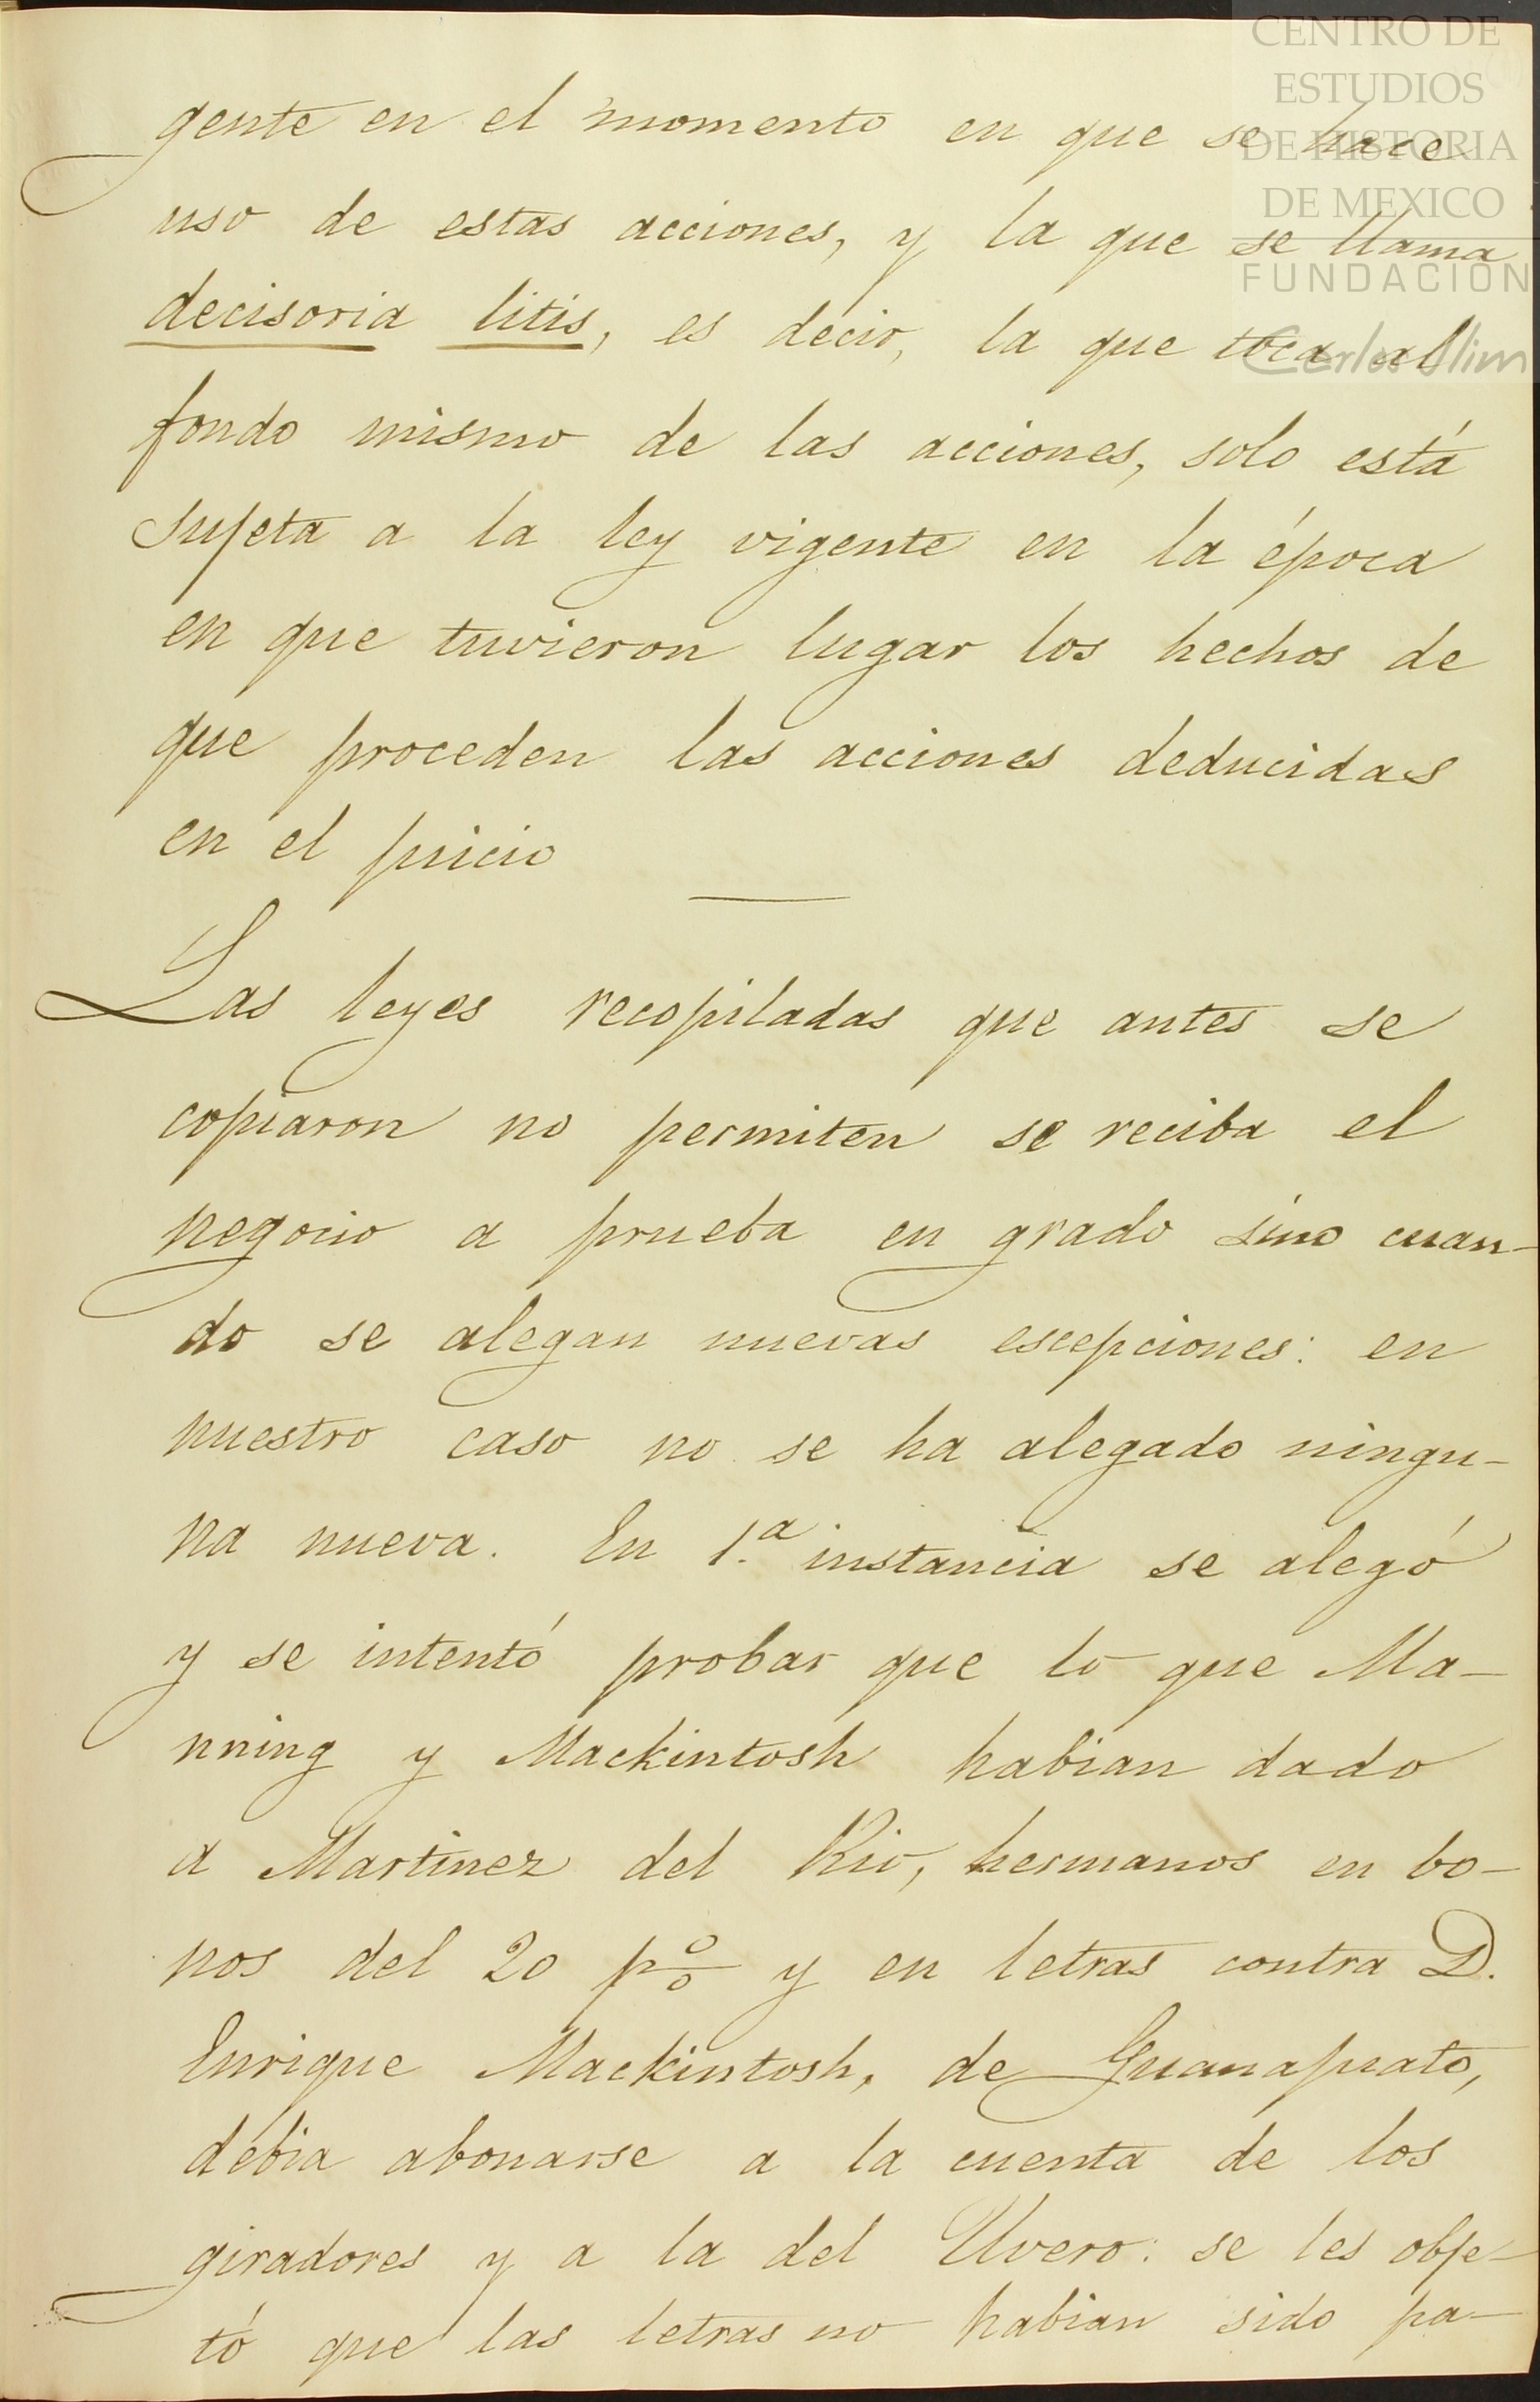 CENTRO DE
ESTUDIOS
DE HISTORIA
DE MEXICO
FUNDACIÓN
Carlos Slim
gente en el momento en que se hace
uso de estas acciones, y la que se llama
decisoria litis, es decir, la que toca al
fondo mismo de las acciones, solo está
sujeta a la ley vigente en la época
en que tuvieron lugar los hechos de
que proceden las acciones deducidas
en el juicio
Las leyes recopiladas que antes se
copiaron no permiten se reciba el
negocio a prueba en grado sino cuan-
do se alegan nuevas escepciones: en
nuestro caso no se ha alegado ningu-
na nueva. En 1.ª instancia se alegó
y se intentó probar que lo que Ma-
nning y Mackintosh habian dado
a Martinez del Rio, hermanos en bo-
nos del 20 p% y en letras contra D.
Enrique Mackintosh, de Guanajuato,
debia abonarse a la cuenta de los
giradores y a la del Uvero: se les obje-
tó que las letras no habian sido pa-